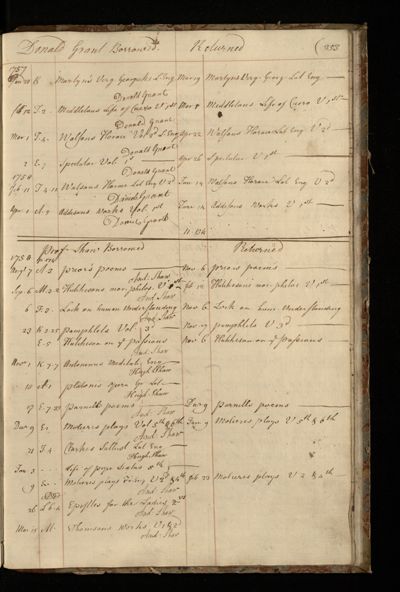 Donald Grant Borrowed Returned (253
1757
Jan 20 K Martyn's Virg Georgicks L. Eng Mar 19 Martyns Virg. Georg Lat Eng
Donald Grant
feb 12 I.2 Middletons Life of Cicero V 1st Mar 8 Middletons Life of Cicero V 1st
Donald Grant
Mar 1 I.4 Watsons Horace Vol 2d L. Eng Apr 22 Watsons Horace Lat Eng V 2d
Donald Grant
2 E.7 Spectator Vol 1st Apr 26 Spectator V 1st
Donald Grant
1758
Feb 11 I.4.10 Watsons Horace Lat Eng V 2d Watsons Horace Lat Eng V 2d
Donald Grant
Apr 1 A.9 Addisons Works Vol 1st Addisons Works V 1st
Donald Grant
Prof. Shaw Borrowed Returned
1758
A.2 priors poems Nov 6 priors poems
And. Shaw
Sep. 6 M.3.2 Hutchesons mor. philos. V 1st feb 12 Hutchesons mor. philos V 1st
And. Shaw
6 F.2 Lock on human Understanding Nov 6 Lock on hum. Understanding
And. Shaw
23 K.2.25 pamphlets Vol 3d Nov 17 pamphlets V 3d
E.5 Hutcheson on ye passions Nov 6 Hutcheson on ye passions
And. Shaw
Nov 1 K.7.7 Antoninus Meditat. Eng
Hugh Shaw
10 platonis opera Gr Lat
Hugh Shaw
17 E.7.29 parnells poems 9 parnells poems
And. Shaw
9 E. Molieres plays Vol 5th & 6th Jan 9 Molieres plays V 5th & 6th
And. Shaw
21 I.4 Clarkes Sallust Lat Eng
Hugh Shaw
Jan 3 Life of pope Sixtus 5th
9 E. Molieres plays Fr Eng V 2d & 4th feb 20 Molieres plays V 2 & 4th
And. Shaw
26 L.6.4 Epistles for the Ladies 2 vs
And. Shaw
Mar 19 M. Thomsons works V 1 & 2
And. Shaw